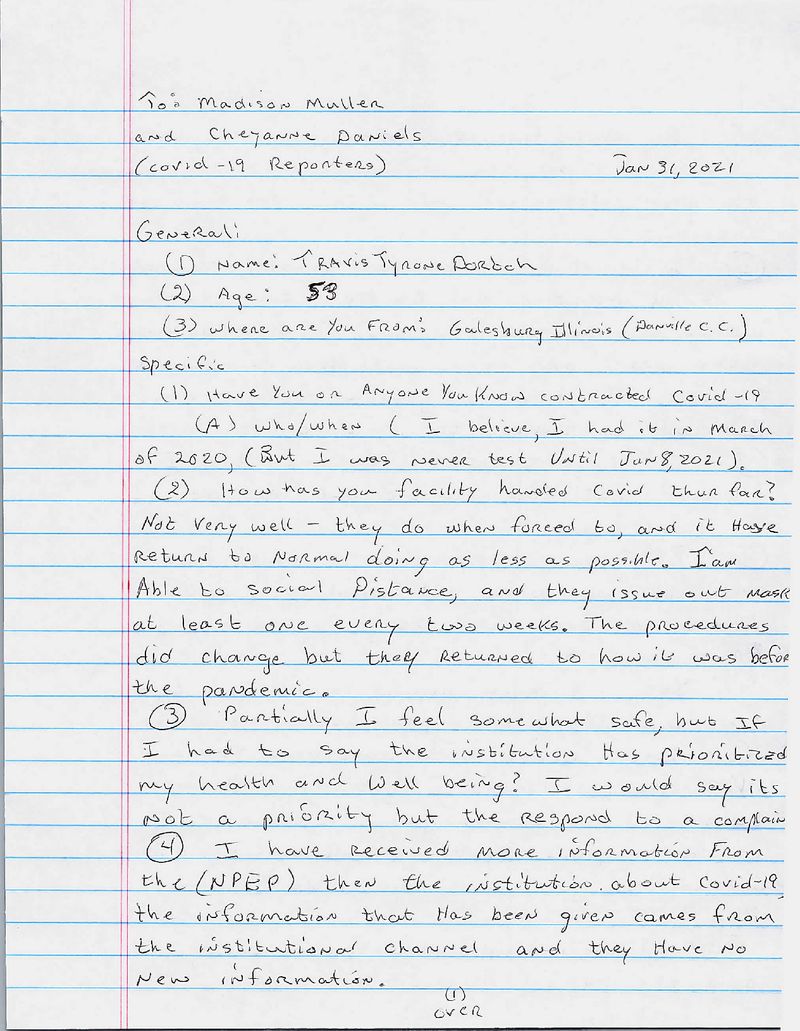 To: Madison Muller
and Cheyanne Daniels
(covid-19 Reporters) Jan 31, 2021
General:
(1) Name: Travis Tyrone Dortch
(2) Age: 53
(3) where are You From: Galesburg Illinois (Danville C.C.)
Specific
(1) Have You or Anyone You Know contracted Covid-19
(A) who/when ( I believe, I had it in March
of 2020, (But I was never test Until Jan 8, 2021).
(2) How has you facility handed Covid thur far?
Not very well - they do when forced to, and it Have
Return to Normal doing as less as possible. I am
Able to social Distance, and they issue out mask
at least one every two weeks. The procedures
did change but they Returned to how it was befor
the pandemic.
(3) Partially I feel somewhat safe, but If
I had to say the institution Has prioritized
my health and Well being? I would say its
Not a priority but the Respond to a complain
(4) I have received more information From
the (NPEP) then the institution. about Covid-19
the information that Has been given comes from
the institutional channel and they Have No
New information.
(1)
over